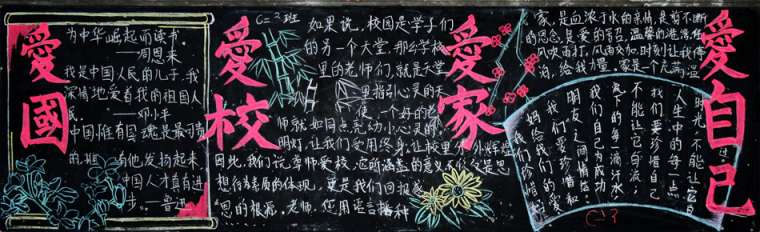 愛國
为中华崛起而读书。
——周恩来
我是中国人民的儿子,我
深情地爱着我的祖国人
民。——邓小平
中国惟有国魂是最可贵
的,惟有他发扬起来
中国人才真有进
步。——鲁迅
愛校
C=3班
如果说,校园是学子们
的另一个天堂,那么学校
里的老师们,就是天堂
里指引心灵的天
使,一个好的老
师就如同点亮幼小心灵的
明灯,让我们受用终身,让校里
因此,我们说,尊师爱校,它所涵盖的意义不仅仅是思
想行为素质的体现,更是我们回报感
恩的根源。老师,您用语言播种
愛家
家,是血浓于水的亲情,是剪不断
的思念,是爱的
风吹雨打,风雨交加,时刻让我停
泊,给我力量,家是一个充满温
愛自己
时光,不能让它白
人生中的每一点
我们要珍惜自己
不能让它白流;
下的每一滴汗水
我们自己为成功
朋友之间情谊;
我们要珍惜和
妈给我们的爱
我们珍惜